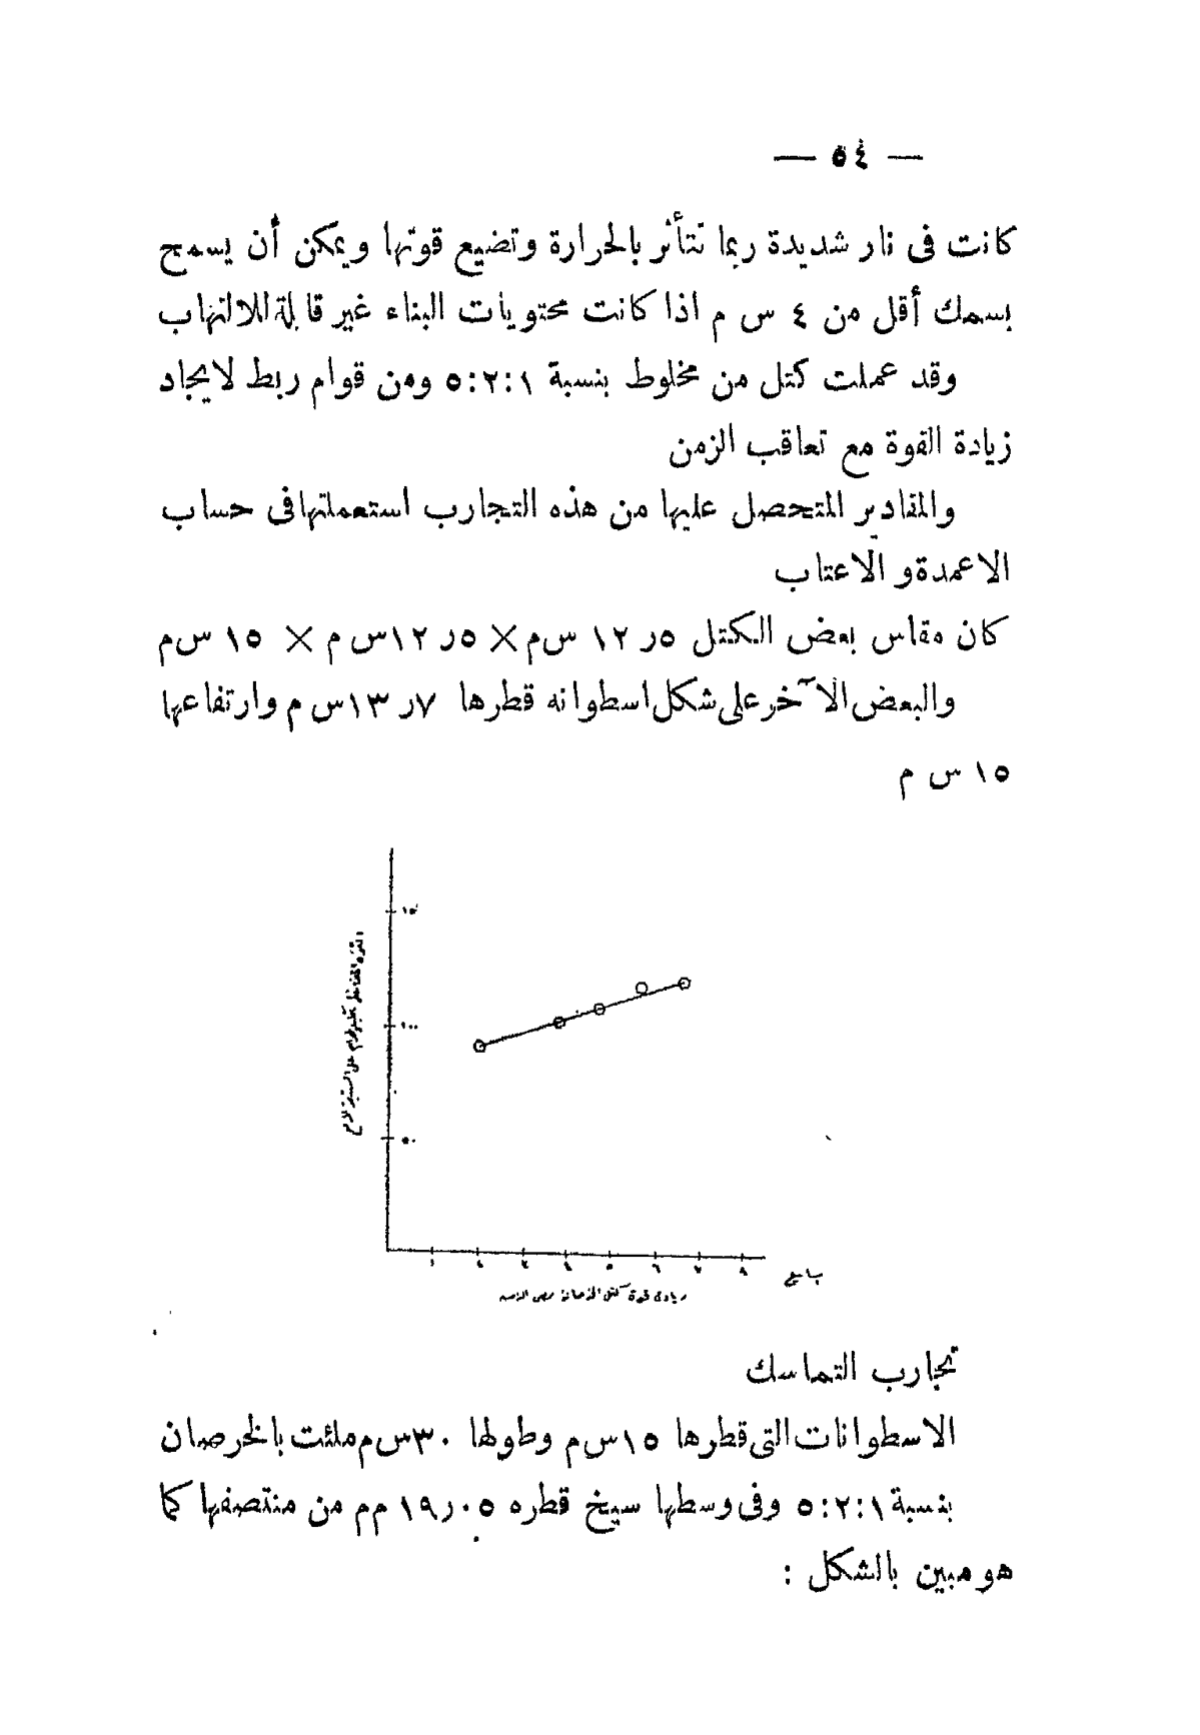 — ٥٤ —
كانت فى نار شديدة ربما تتأثر بالحرارة وتضيع قوتها ويمكن أن يسمح
بسمك أقل من ٤ س م اذا كانت محتويات البناء غير قابلة للالتهاب
وقد عملت كتل من مخلوط بنسبة ٥:٢:١ ومن قوام ربط لايجاد
زيادة القوة مع تعاقب الزمن
والمقادير المتحصل عليها من هذه التجارب استعملتها فى حساب
الاعمدة و الاعتاب
كان مقاس بعض الكتل ٥ر١٢ س م × ٥ر١٢ س م × ١٥ س م
والبعض الآخر على شكل اسطوانه قطرها ٧ر١٣ س م وارتفاعها
١٥ س م
١٥٠
١٠٠
٥٠
١ ٢ ٣ ٤ ٥ ٦ ٧ ٨
تجارب التماسك
الاسطوانات التى قطرها ١٥ س م وطولها ٣٠ س م ملئت بالخرصان
بنسبة ٥:٢:١ وفى وسطها سيخ قطره ٠٥ر١٩ مم من منتصفها كما
هو مبين بالشكل :